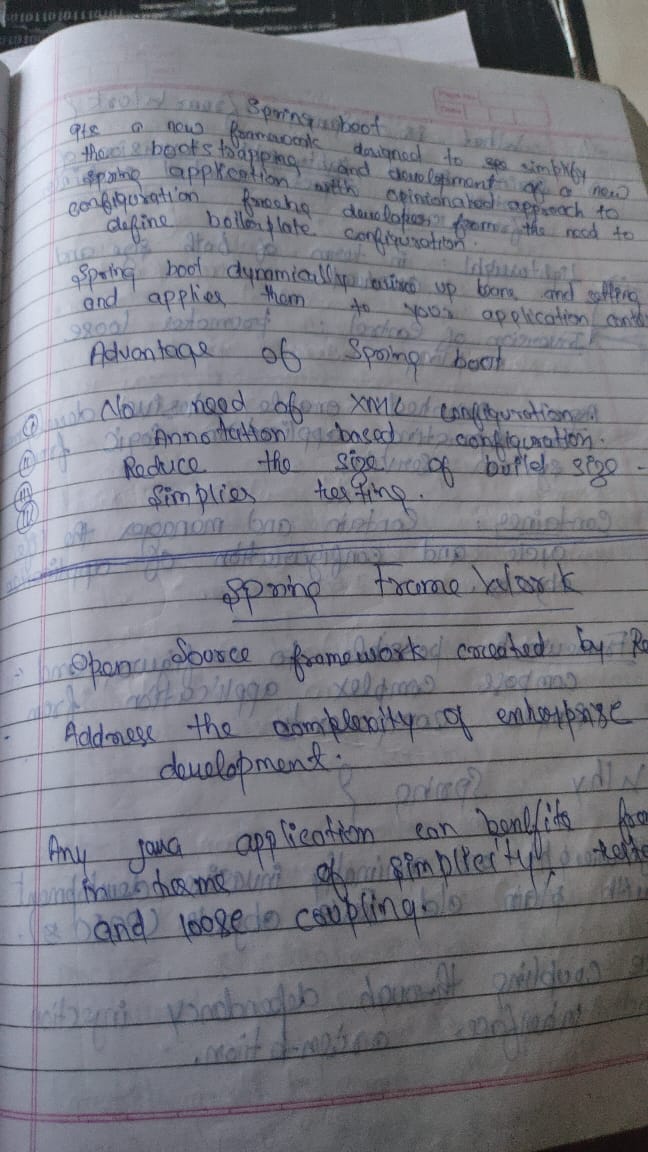 Spring boot
Its a new framework designed to simplify
the bootstrapping and development of a new
spring application with opinionated approach to
configuration freeing developer from the need to
define boilerplate configuration.
Spring boot dynamically wires up beans and setting
and applies them to your application
Advantage of Spring boot
① No need of XML configuration
② Annotation based configuration.
③ Reduce the size of build size -
④ Simplies testing.
Spring Frame Work
Open Source framework created by Ro
Address the complexity of enterprise
development.
Any java application can benefits
in terms of simplicity,
and loose coupling.